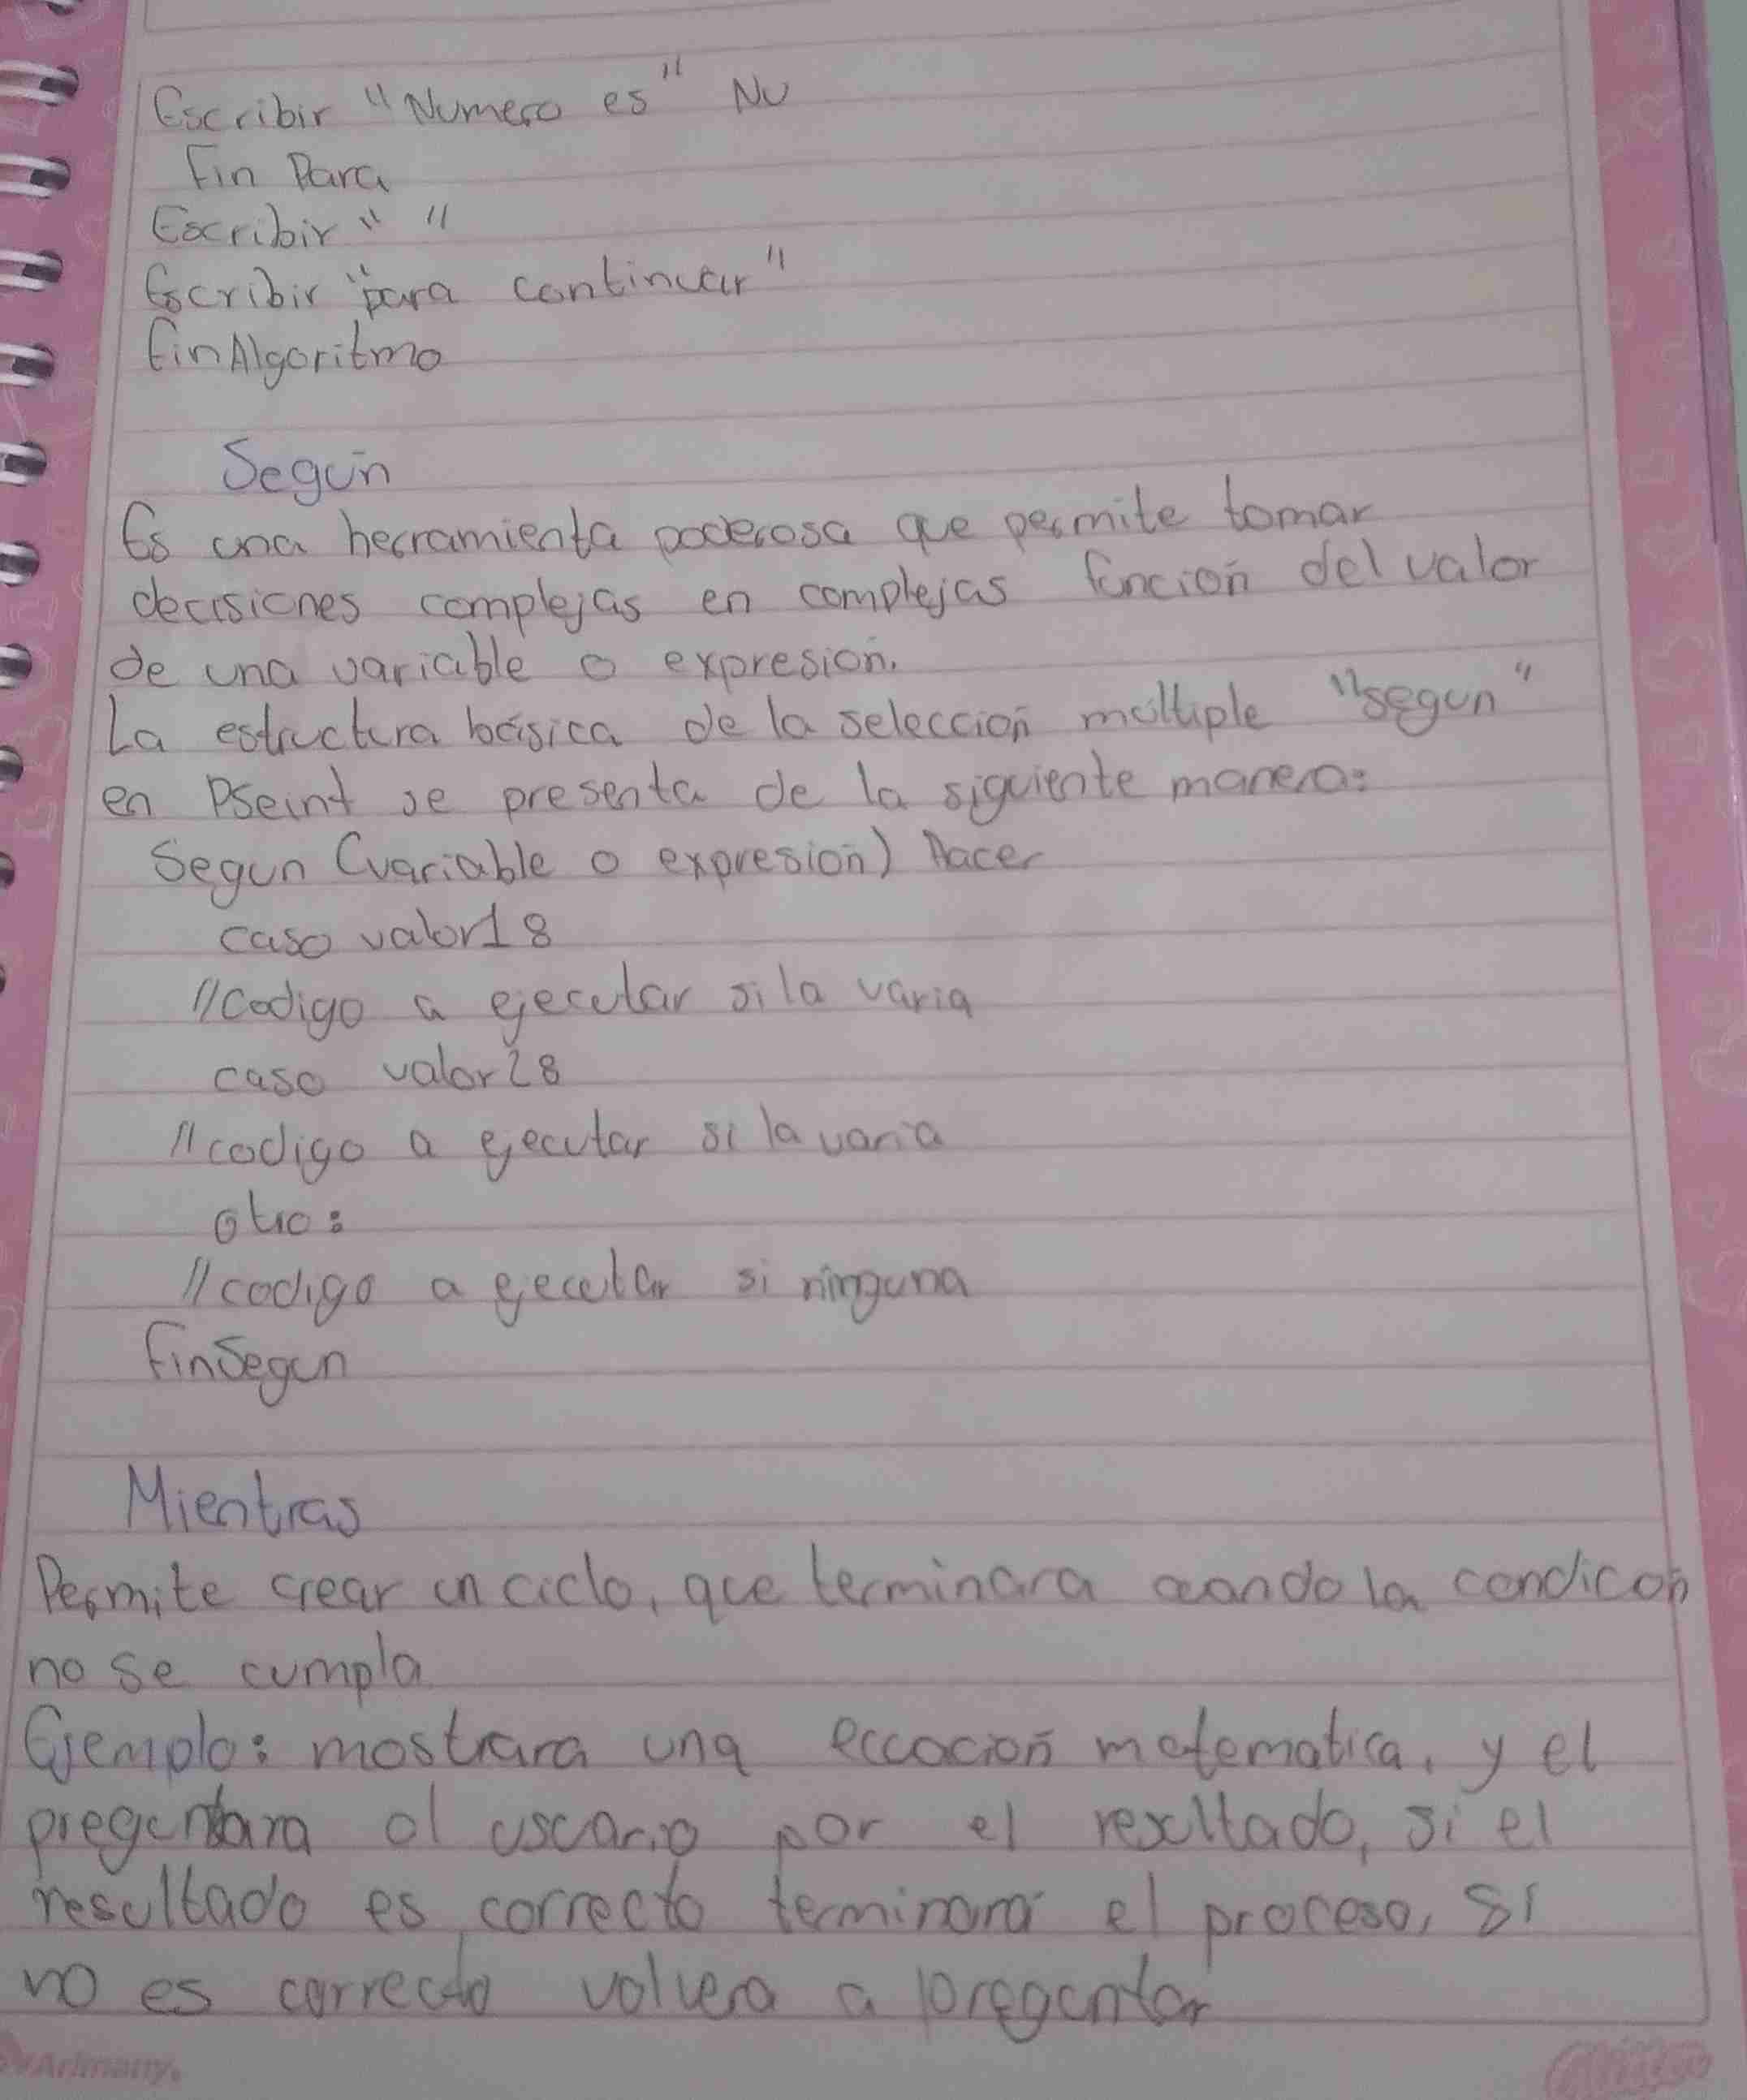 Escribir "Numero es" Nu
Fin Para
Escribir " "
Escribir "para continuar"
FinAlgoritmo
Según
Es una herramienta poderosa que permite tomar
decisiones complejas en complejas función del valor
de una variable o expresion.
La estructura básica de la selección multiple "segun"
en PSeint se presenta de la siguiente manera:
Segun (variable o expresión) Hacer
caso valor1:
//Codigo a ejecutar si la varia
caso valor2:
//codigo a ejecutar si la varia
otro:
//codigo a ejecutar si ninguna
FinSegun
Mientras
Permite crear un ciclo, que terminara cuando la condicón
no se cumpla
Ejemplo: mostrara una ecuación matematica, y el
preguntara al usuario por el resultado, si el
resultado es correcto terminará el proceso, si
no es correcto volvera a preguntar
Arimany